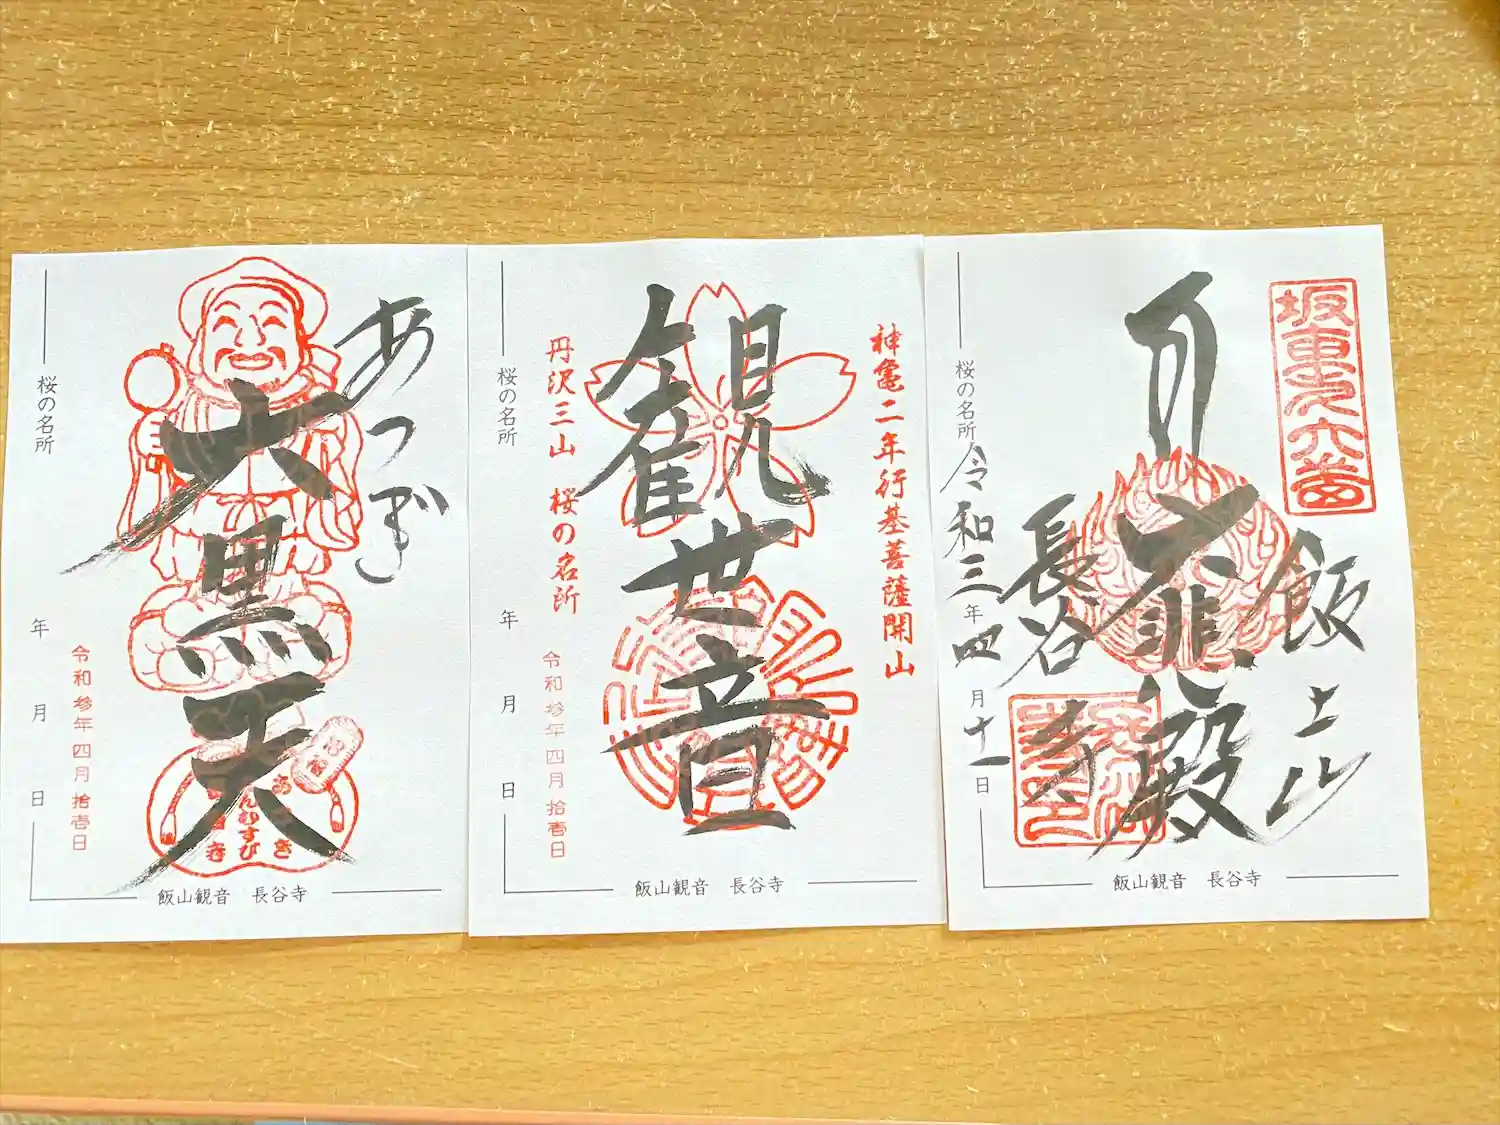 あつぎ
大黒天
桜の名所
年 月 日
令和参年四月拾壱日
えんむすび
飯山観音 長谷寺
神亀二年行基菩薩開山
観世音
丹沢三山 桜の名所
桜の名所
年 月 日
令和参年四月拾壱日
飯山観音 長谷寺
坂東第六番
飯上山
大悲殿
長谷寺
桜の名所
令和三年四月十一日
飯山観音 長谷寺